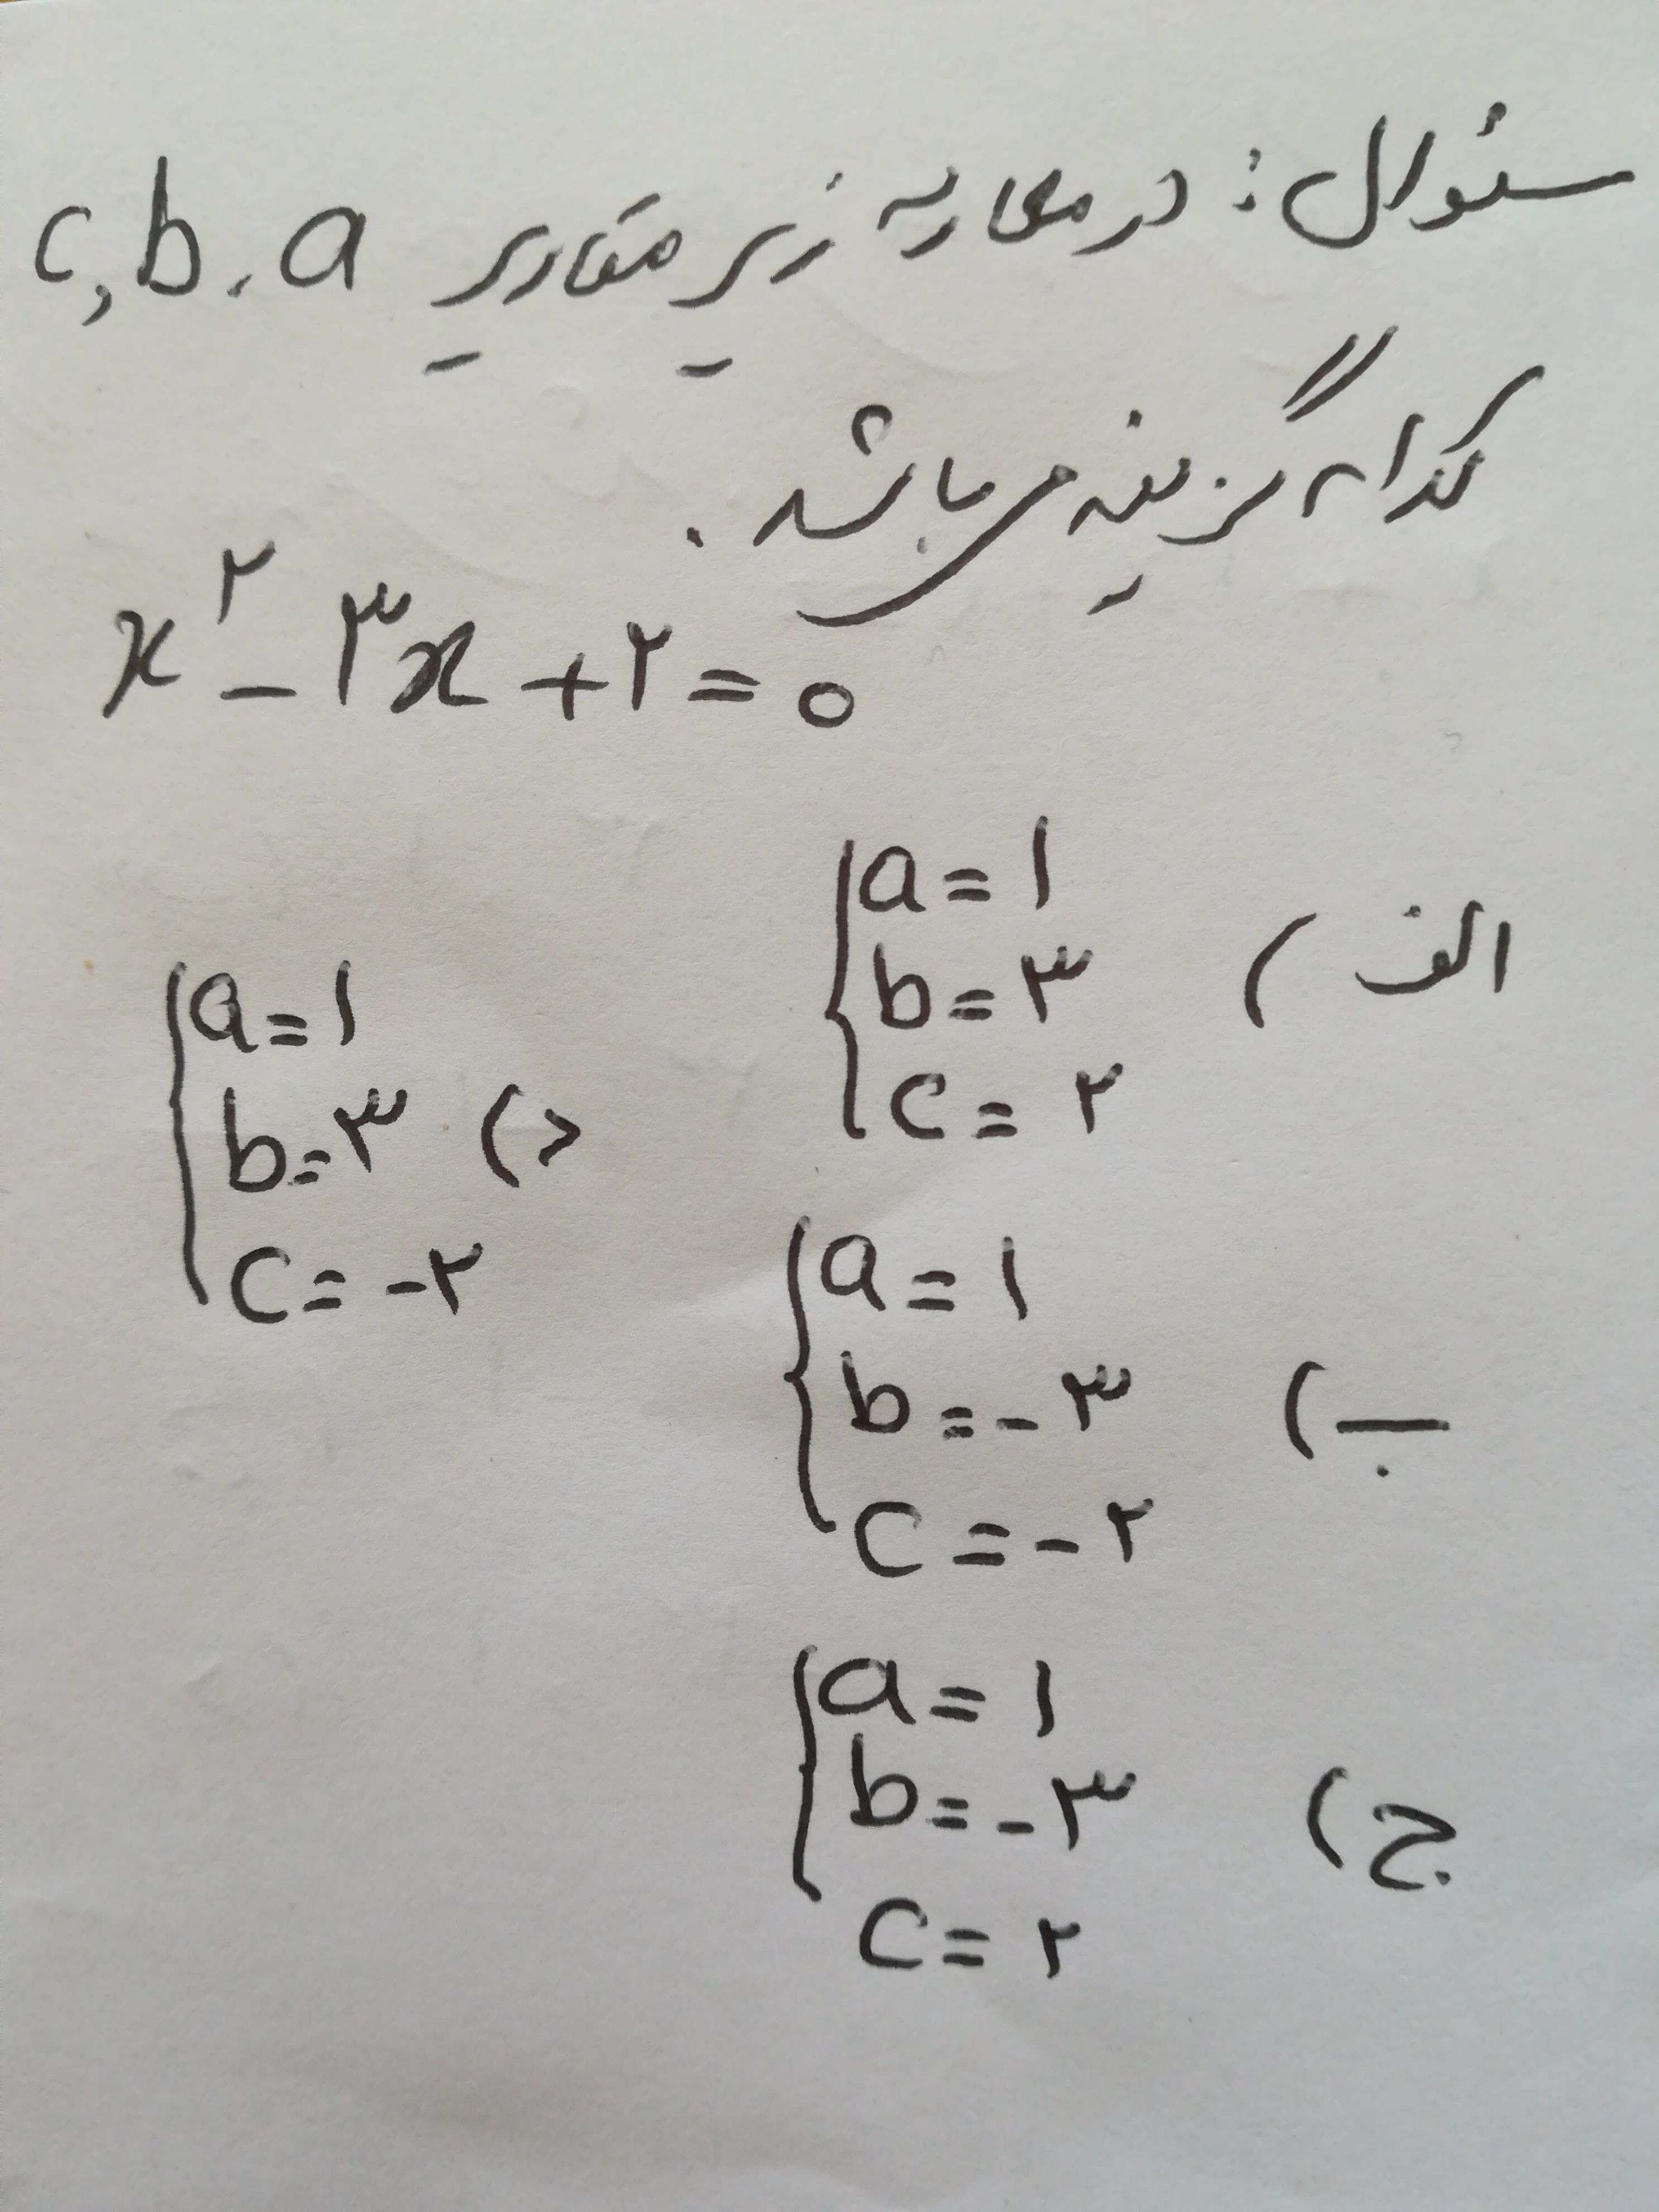 سئوال: در معادله زیر مقادیر a، b، c
کدام گزینه می باشد.
x² - ۳x + ۲ = 0
الف) a = ۱
b = ۳
c = ۲
ب) a = ۱
b = - ۳
c = - ۲
ج) a = ۱
b = - ۳
c = ۲
د) a = ۱
b = ۳
c = - ۲